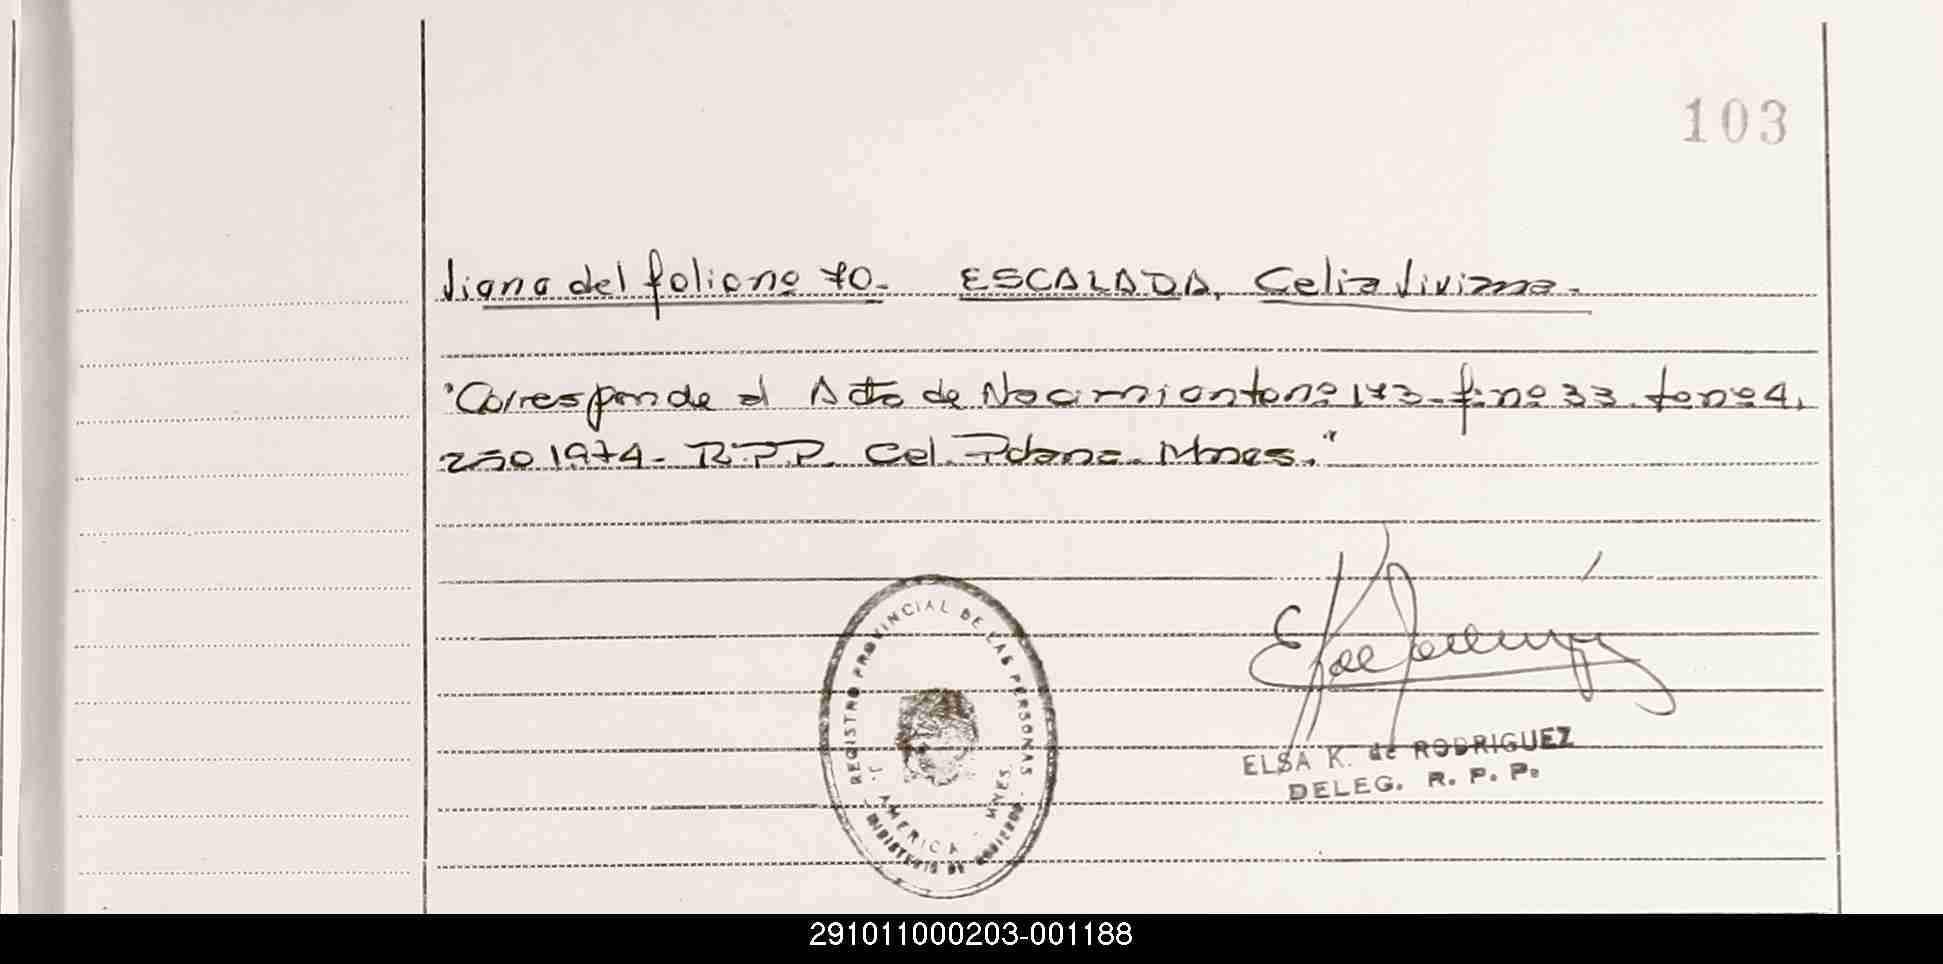 103
Viene del folio nº 70. ESCALADA, Celia Viviana.
"Corresponde al Acta de Nacimiento nº 173. fº nº 33. tº nº 4,
año 1974. R.P.P. Cel. Mnes."
REGISTRO PROVINCIAL DE LAS PERSONAS
AMERICA - MNES.
MINISTERIO DE GOBIERNO
ELSA K. de RODRIGUEZ
DELEG. R. P. P.
291011000203-001188